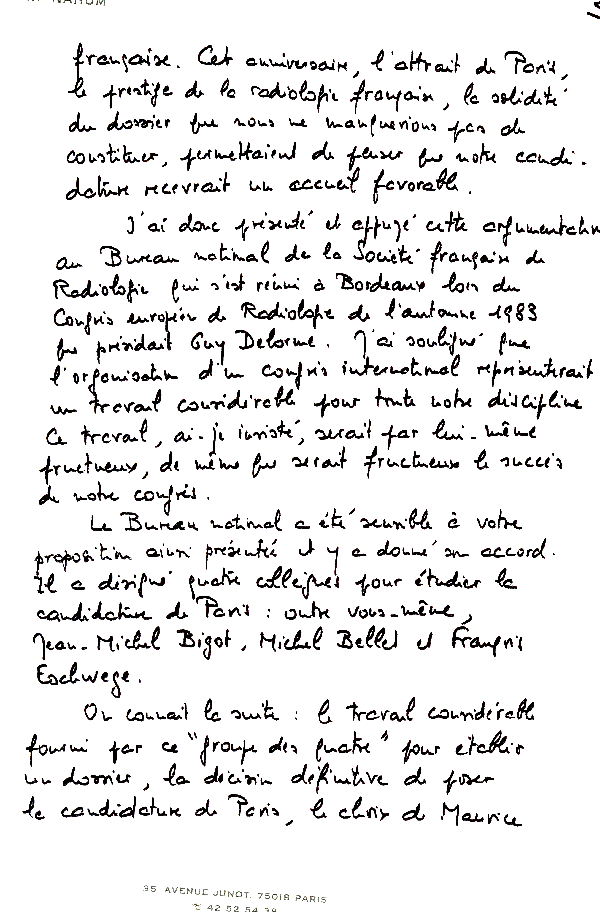 NAHUM
française. Cet anniversaire, l'attrait de Paris,
le prestige de la radiologie française, la solidité
du dossier que nous ne manquerions pas de
constituer, permettaient de penser que notre candi-
dature recevrait un accueil favorable.
J'ai donc présenté et appuyé cette argumentation
au Bureau national de la Société française de
Radiologie qui s'est réuni à Bordeaux lors du
Congrès européen de Radiologie de l'automne 1983
que présidait Guy Delorme. J'ai souligné que
l'organisation d'un congrès international représenterait
un travail considérable pour toute notre discipline
Ce travail, ai-je insisté, serait par lui-même
fructueux, de même que serait fructueux le succès
de notre congrès.
Le Bureau national a été sensible à votre
proposition ainsi présentée et y a donné son accord.
Il a désigné quatre collègues pour étudier la
candidature de Paris : outre vous-même,
Jean-Michel Bigot, Michel Bellet et François
Eschwege.
On connait la suite : le travail considérable
fourni par ce "groupe des quatre" pour établir
un dossier, la décision définitive de poser
la candidature de Paris, le choix de Maurice
35 AVENUE JUNOT, 75018 PARIS
42 52 54 38